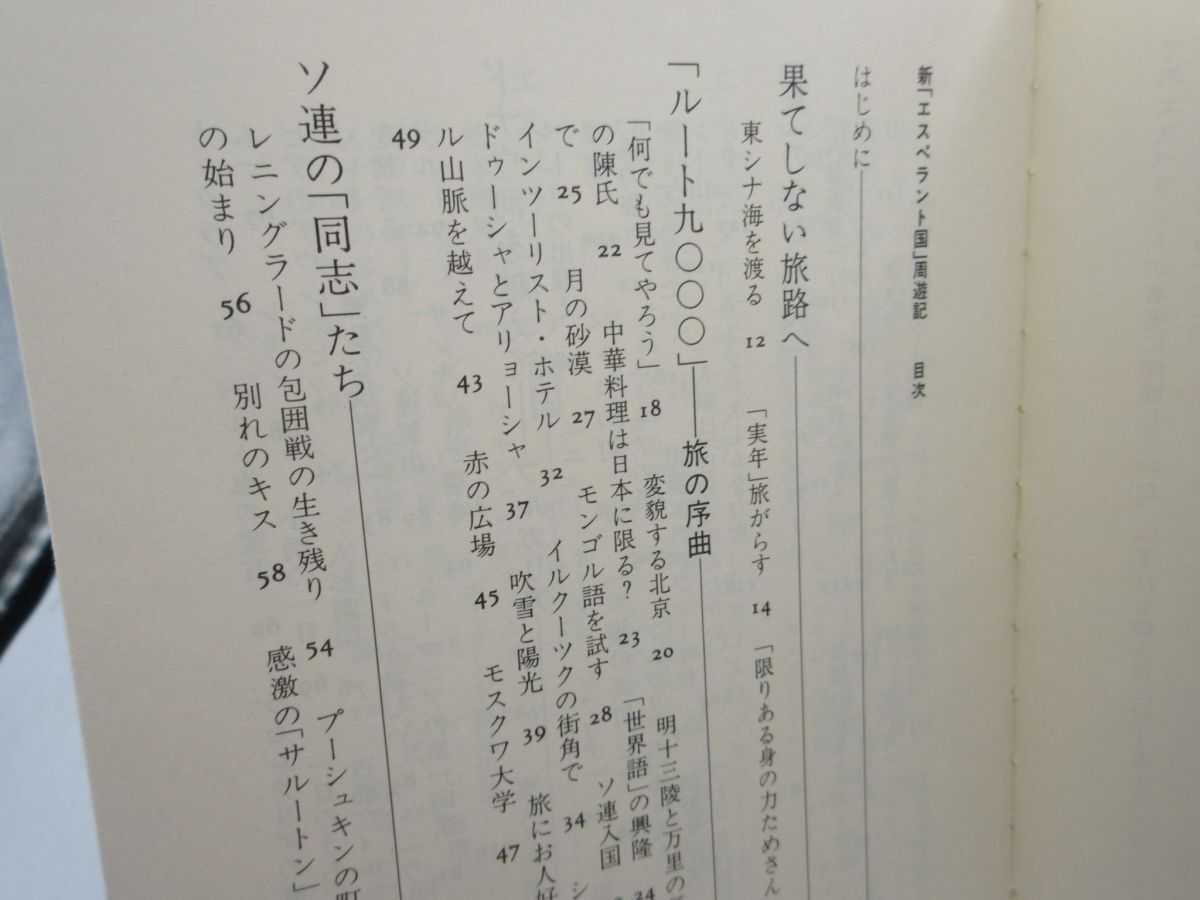 新「エスペラント国」周遊記　目次
はじめに
果てしない旅路へ
東シナ海を渡る 12 「実年」旅がらす 14 「限りある身の力ためさん
「ルート九〇〇〇」——旅の序曲
「何でも見てやろう」 18 変貌する北京 20 明十三陵と万里の
の陳氏 22 中華料理は日本に限る？ 23 「世界語」の興隆 24
で 25 月の砂漠 27 モンゴル語を試す 28 ソ連入国
インツーリスト・ホテル 32 イルクーツクの街角で 34 シ
ドゥーシャとアリョーシャ 37 吹雪と陽光 39 旅にお人好
ル山脈を越えて 43 赤の広場 45 モスクワ大学 47
49
ソ連の「同志」たち
レニングラードの包囲戦の生き残り 54 プーシュキンの町
の始まり 56 別れのキス 58 感激の「サルートン」